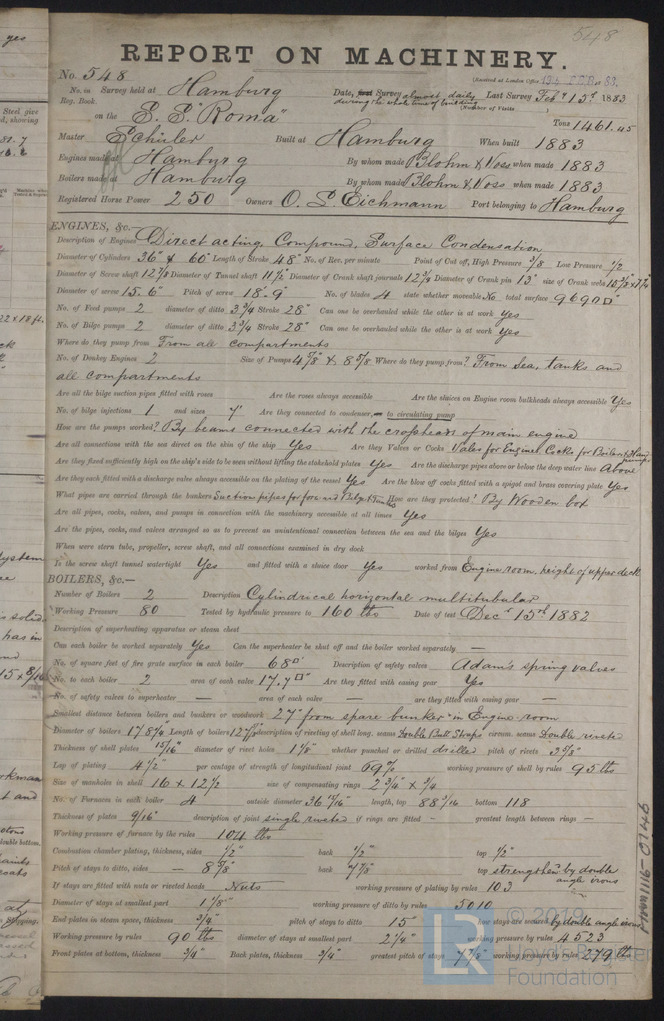 548
REPORT ON MACHINERY.
No. 548
(Received at London Office 83.
No. in Survey held at Hamburg Date, first Survey almost daily Last Survey Feby 13th 1883
Reg. Book. during the whole time of building (Number of Visits
on the S. S. "Roma" Tons 1461.45
Master Schüler Built at Hamburg When built 1883
Engines made at Hamburg By whom made Blohm & Voss when made 1883
Boilers made at Hamburg By whom made Blohm & Voss when made 1883
Registered Horse Power 250 Owners O. L. Eichmann Port belonging to Hamburg
ENGINES, &c.—
Description of Engines Direct acting, Compound, Surface Condensation
Diameter of Cylinders 36" & 60" Length of Stroke 48" No. of Rev. per minute Point of Cut off, High Pressure 5/8 Low Pressure 1/2
Diameter of Screw shaft 12 7/8 Diameter of Tunnel shaft 11 1/2 Diameter of Crank shaft journals 12 3/8 Diameter of Crank pin 13" size of Crank webs
Diameter of screw 15. 6" Pitch of screw 18. 9" No. of blades 4 state whether moveable No total surface 9690□"
No. of Feed pumps 2 diameter of ditto 3 3/4 Stroke 28" Can one be overhauled while the other is at work Yes
No. of Bilge pumps 2 diameter of ditto 3 3/4 Stroke 28" Can one be overhauled while the other is at work Yes
Where do they pump from From all compartments
No. of Donkey Engines 2 Size of Pumps 4 7/8 & 8 5/8 Where do they pump from? From Sea, tanks and
all compartments
Are all the bilge suction pipes fitted with roses Are the roses always accessible Are the sluices on Engine room bulkheads always accessible Yes
No. of bilge injections 1 and sizes 7" Are they connected to condenser, or to circulating pump
How are the pumps worked? By beams connected with the crossheads of main engine
Are all connections with the sea direct on the skin of the ship Yes Are they Valves or Cocks Valves for Engines Cocks for Boilers & Hand pumps
Are they fixed sufficiently high on the ship's side to be seen without lifting the stokehold plates Yes Are the discharge pipes above or below the deep water line Above
Are they each fitted with a discharge valve always accessible on the plating of the vessel Yes Are the blow off cocks fitted with a spigot and brass covering plate Yes
What pipes are carried through the bunkers Suction pipes for fore and Bilge & Tanks How are they protected? By Wooden box
Are all pipes, cocks, valves, and pumps in connection with the machinery accessible at all times Yes
Are the pipes, cocks, and valves arranged so as to prevent an unintentional connection between the sea and the bilges Yes
When were stern tube, propeller, screw shaft, and all connections examined in dry dock
Is the screw shaft tunnel watertight Yes and fitted with a sluice door Yes worked from Engine room, height of upper deck
BOILERS, &c.—
Number of Boilers 2 Description Cylindrical horizontal multitubular
Working Pressure 80 Tested by hydraulic pressure to 160 lbs Date of test Decr 15th 1882
Description of superheating apparatus or steam chest
Can each boiler be worked separately Yes Can the superheater be shut off and the boiler worked separately —
No. of square feet of fire grate surface in each boiler 68□' Description of safety valves Adam's spring valves
No. to each boiler 2 area of each valve 17.7□" Are they fitted with easing gear Yes
No. of safety valves to superheater — area of each valve — are they fitted with easing gear —
Smallest distance between boilers and bunkers or woodwork 27" from spare bunker in Engine room
Diameter of boilers Length of boilers description of riveting of shell long. seams Double Butt Straps circum. seams Double riveted
Thickness of shell plates 15/16" diameter of rivet holes 1 1/8" whether punched or drilled drilled pitch of rivets 3 5/8"
Lap of plating 4 1/2" per centage of strength of longitudinal joint 69 % working pressure of shell by rules 95 lbs
Size of manholes in shell 16 x 12 1/2 size of compensating rings 2 3/4 x 3/4
No. of Furnaces in each boiler 4 outside diameter 36 length, top 88 3/16 bottom 118
Thickness of plates 9/16" description of joint single riveted if rings are fitted — greatest length between rings —
Working pressure of furnace by the rules 104 lbs
Combustion chamber plating, thickness, sides 1/2" back 1/2" top 1/2"
Pitch of stays to ditto, sides — 8 3/8" back 7 7/8" top strengthend by double angle irons
If stays are fitted with nuts or riveted heads Nuts working pressure of plating by rules 103
Diameter of stays at smallest part 1 1/8" working pressure of ditto by rules 5010
End plates in steam space, thickness 3/4" pitch of stays to ditto 15" how stays are secured by double angle irons
Working pressure by rules 90 lbs diameter of stays at smallest part 2 1/4" working pressure by rules 4523
Front plates at bottom, thickness 3/4" Back plates, thickness 3/4" greatest pitch of stays 7 7/8" working pressure by rules 279 lbs
© 2019
Lloyd's Register
Foundation